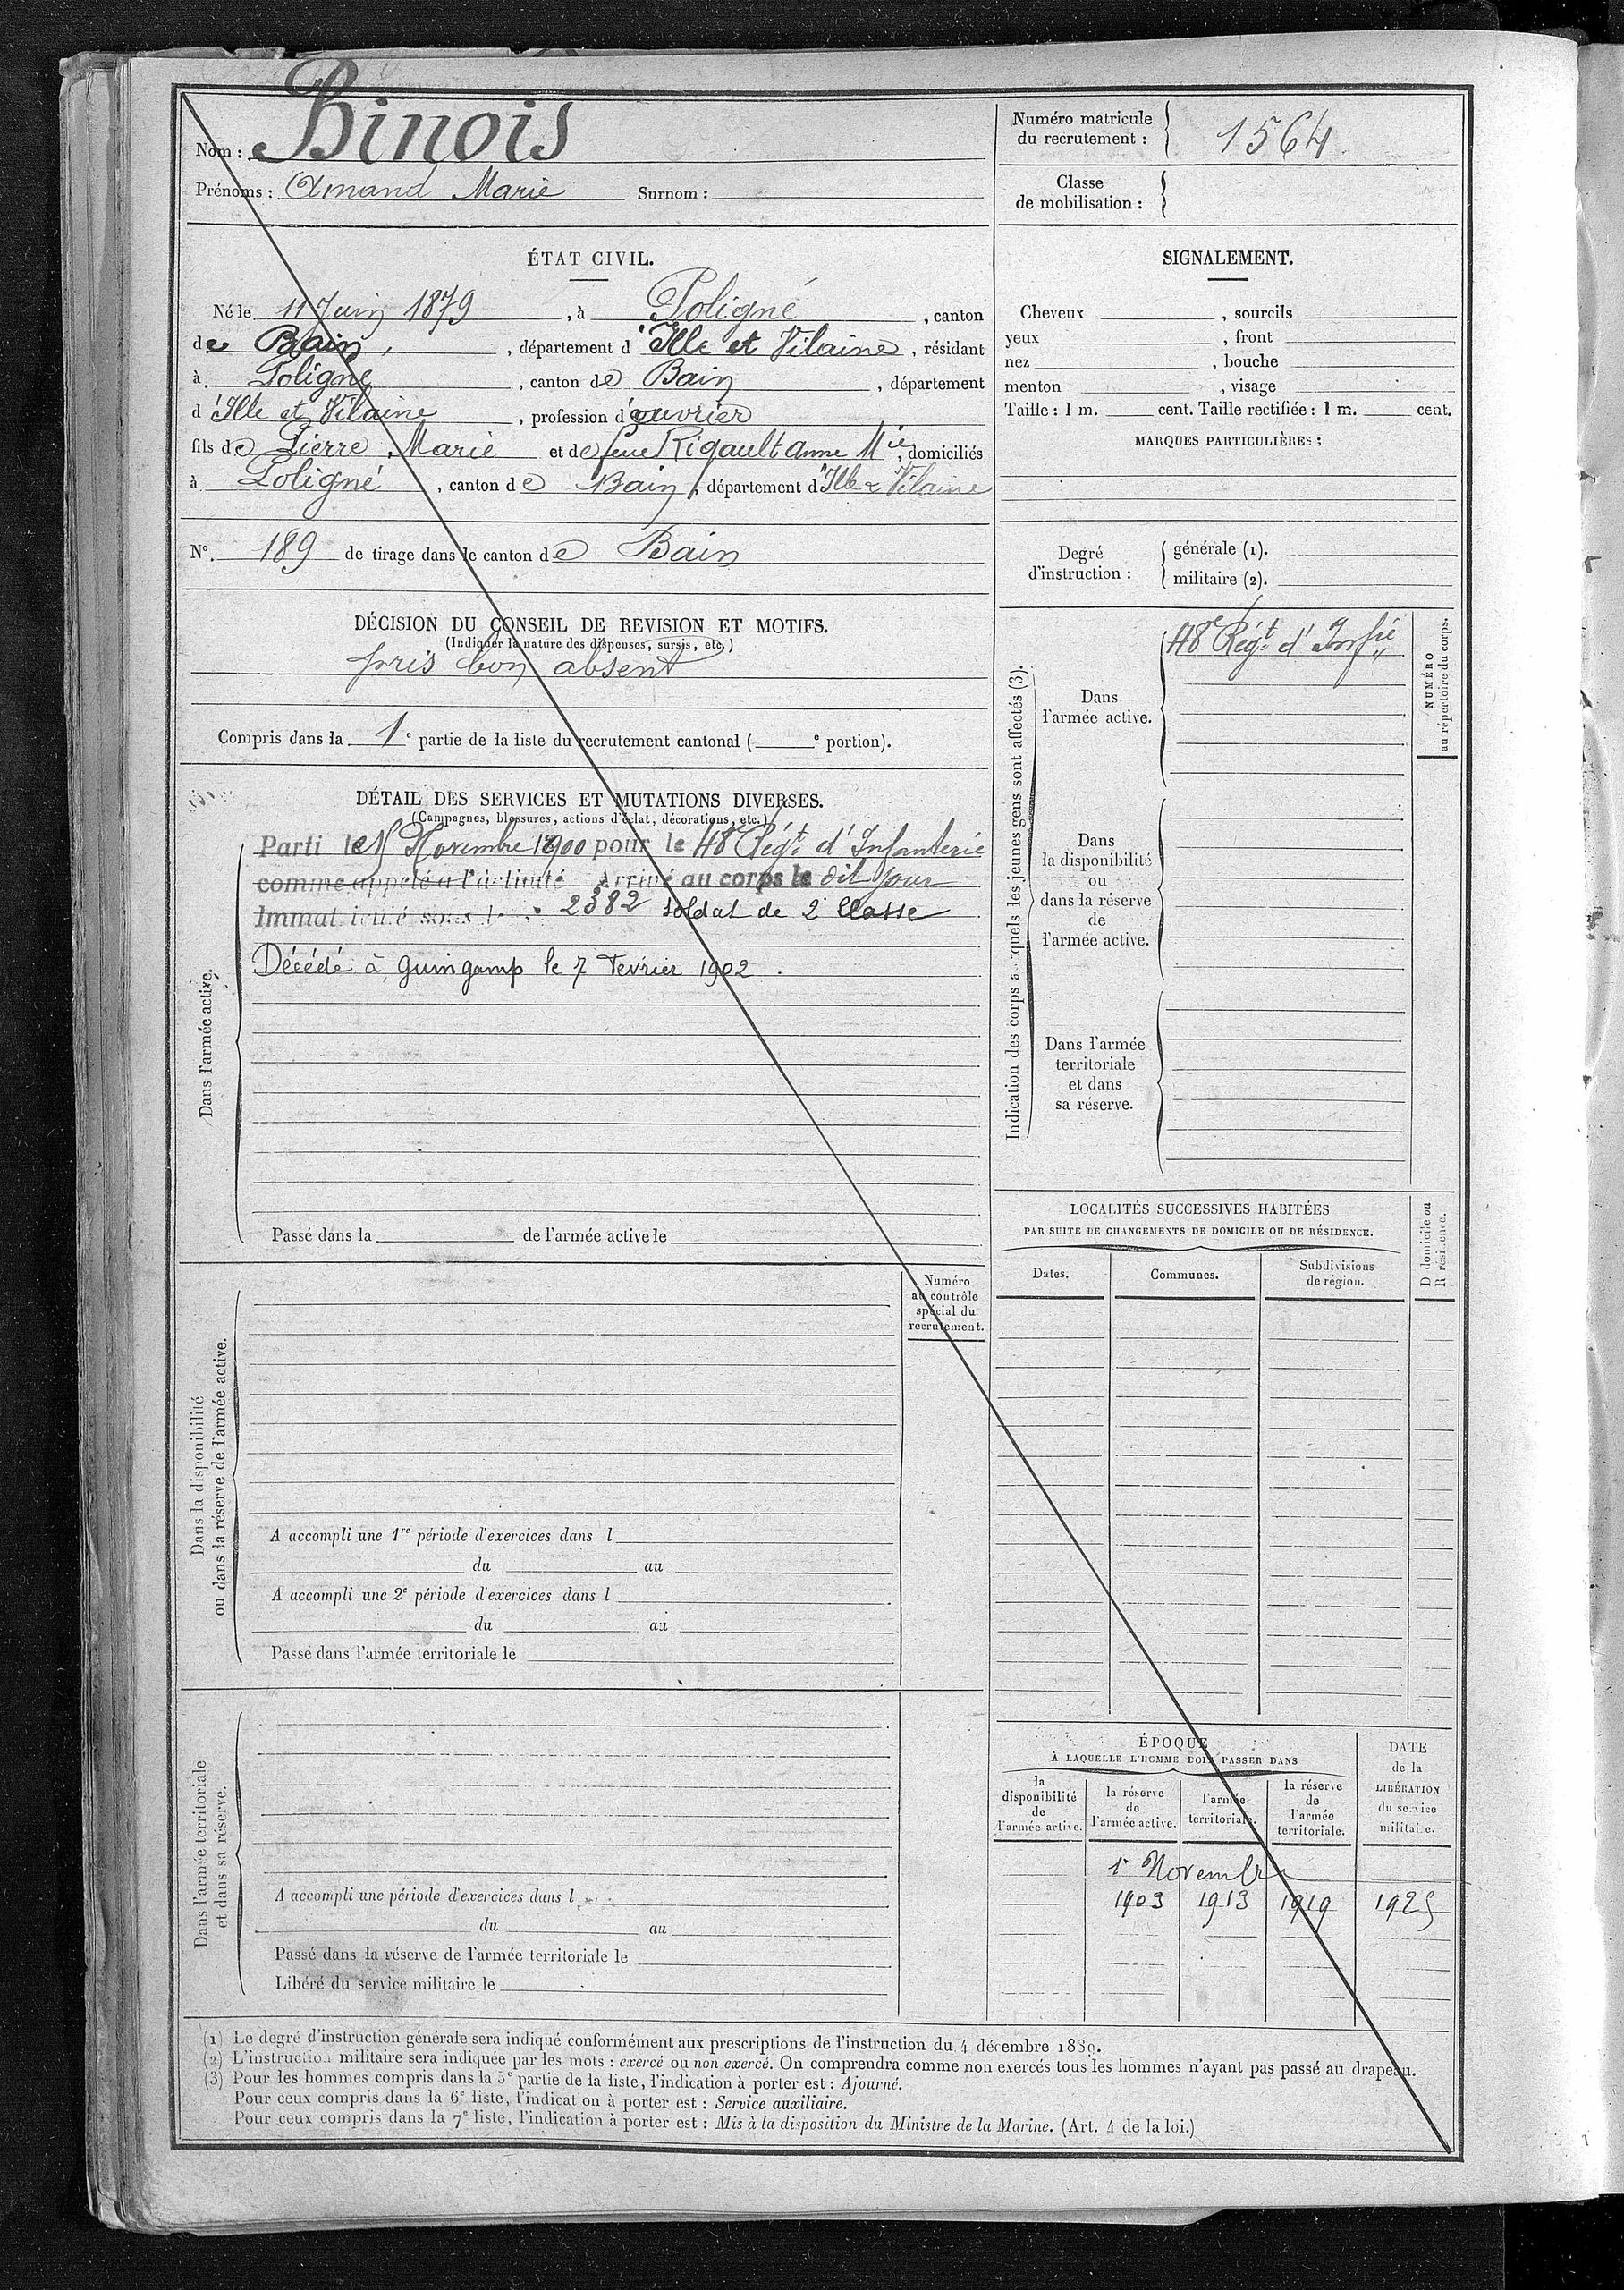 Nom : Binois
Prénoms : Amand Marie Surnom :
Numéro matricule
du recrutement : 1564
Classe
de mobilisation :
ÉTAT CIVIL.
Né le 11 Juin 1879, à Poligné, canton
de Bain, département d'Ille et Vilaine, résidant
à Poligné, canton de Bain, département
d'Ille et Vilaine, profession d'ouvrier
fils de Pierre Marie et de feue Rigault Anne Mie, domiciliés
à Poligné, canton de Bain, département d'Ille & Vilaine
N°. 189 de tirage dans le canton de Bain
DÉCISION DU CONSEIL DE REVISION ET MOTIFS.
(Indiquer la nature des dispenses, sursis, etc.)
pris bon absent
Compris dans la 1e partie de la liste du recrutement cantonal ( e portion).
DÉTAIL DES SERVICES ET MUTATIONS DIVERSES.
(Campagnes, blessures, actions d'éclat, décorations, etc.)
Dans l'armée active.
Parti le Novembre 1900 pour le 48e Régt d'Infanterie
comme appelé à l'activité Arrivé au corps le dit jour
Immatriculé sous le n° 2382 soldat de 2e Classe
Décédé à Guingamp le 7 Fevrier 1902.
Passé dans la de l'armée active le
Dans la disponibilité
ou dans la réserve de l'armée active.
Numéro
au contrôle
spécial du
recrutement.
A accompli une 1re période d'exercices dans l
du au
A accompli une 2e période d'exercices dans l
du au
Passé dans l'armée territoriale le
Dans l'armée territoriale
et dans sa réserve.
A accompli une période d'exercices dans l
du au
Passé dans la réserve de l'armée territoriale le
Libéré du service militaire le
SIGNALEMENT.
Cheveux , sourcils
yeux , front
nez , bouche
menton , visage
Taille : 1 m. cent. Taille rectifiée : 1 m. cent.
MARQUES PARTICULIÈRES :
Degré
d'instruction :
générale (1).
militaire (2).
Indication des corps auxquels les jeunes gens sont affectés (3).
Dans
l'armée active.
48e Régt d'Infie
NUMÉRO
au répertoire du corps.
Dans
la disponibilité
ou
dans la réserve
de
l'armée active.
Dans l'armée
territoriale
et dans
sa réserve.
LOCALITÉS SUCCESSIVES HABITÉES
PAR SUITE DE CHANGEMENTS DE DOMICILE OU DE RÉSIDENCE.
Dates. Communes. Subdivisions
de région.
D domicile ou
R résidence.
ÉPOQUE
À LAQUELLE L'HOMME DOIT PASSER DANS
la
disponibilité
de
l'armée active.
la réserve
de
l'armée active.
l'armée
territoriale.
la réserve
de
l'armée
territoriale.
DATE
de la
LIBÉRATION
du service
militaire.
1r Novembre
1903 1913 1919 1925
(1) Le degré d'instruction générale sera indiqué conformément aux prescriptions de l'instruction du 4 décembre 1889.
(2) L'instruction militaire sera indiquée par les mots : exercé ou non exercé. On comprendra comme non exercés tous les hommes n'ayant pas passé au drapeau.
(3) Pour les hommes compris dans la 5e partie de la liste, l'indication à porter est : Ajourné.
Pour ceux compris dans la 6e liste, l'indication à porter est : Service auxiliaire.
Pour ceux compris dans la 7e liste, l'indication à porter est : Mis à la disposition du Ministre de la Marine. (Art. 4 de la loi.)